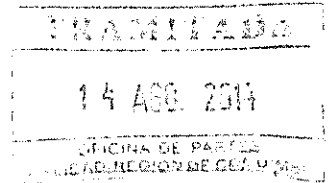 TRAMITADO
14 AGO. 2014
OFICINA DE PARTES
REGION DE